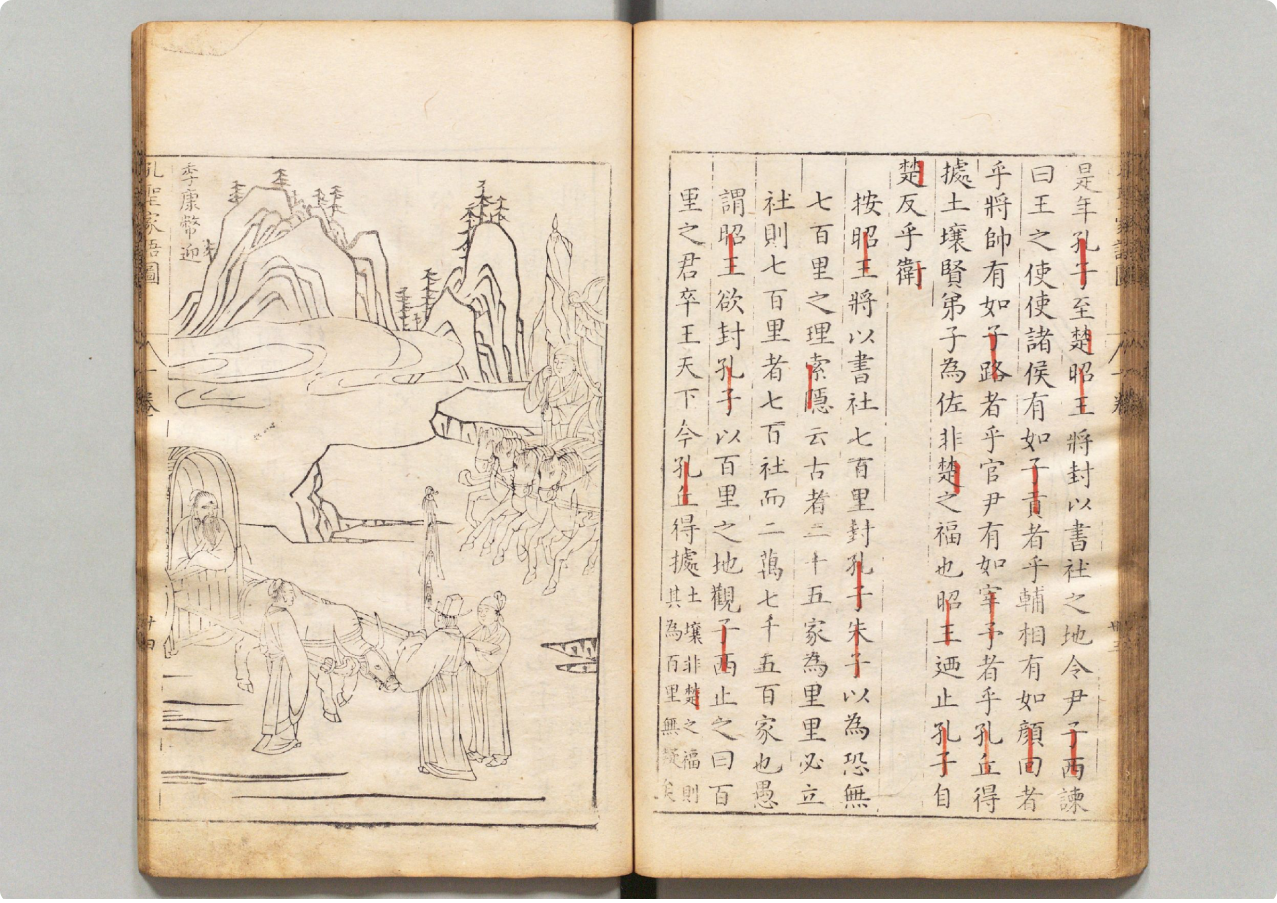 是年孔子至楚昭王將封以書社之地令尹子西諫
曰王之使使諸侯有如子貢者乎輔相有如顏回者
乎將帥有如子路者乎官尹有如宰予者乎孔丘得
據土壤賢弟子為佐非楚之福也昭王迺止孔子自
楚反乎衛
按昭王將以書社七百里封孔子朱子以為恐無
七百里之理索隱云古者二十五家為里里必立
社則七百里者七百社而二萬七千五百家也愚
謂昭王欲封孔子以百里之地觀子西止之曰百
里之君卒王天下今孔丘得據土壤非楚之福則其為百里無疑矣
季康幣迎
孔聖家語圖
廿四